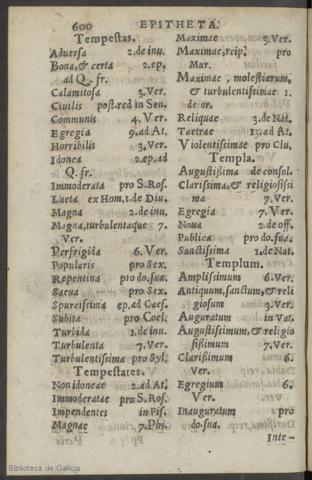 600 EPITHETA.
Tempestas.
Aduersa 2.de inu.
Bona,& certa 2.ep.
ad Q. fr.
Calamitosa 3.Ver.
Ciuilis post.red in Sen.
Communis 4.Ver.
Egregia 9.ad At.
Horribilis 3.Ver.
Idonea 2.ep.ad
Q. fr.
Immoderata pro S.Ros.
Laeta ex Hom.1.de Diu.
Magna 2.de inu.
Magna,turbulentaque 7.
Ver.
Perfrigida 6.Ver.
Popularis pro Sex.
Repentina pro do.sua.
Saeua pro Sex.
Spurcissima ep.ad Caes.
Subita pro Coel.
Turbida 1.de inu.
Turbulenta 7.Ver.
Turbulentissima pro Syl.
Tempestates.
Non idoneae 2.ad At.
Immoderatae pro S.Ros.
Impendentes in Pis.
Magnae 7.Phi.
Maximae 3.Ver.
Maximae,reip. pro
Mur.
Maximae, molestiarum,
& turbulentissimae 1.
de or.
Reliquae 3.de Nat.
Taetrae 13.ad At.
Violentissimae pro Clu.
Templa.
Augustissima de consol.
Clarissima,& religiosissi
ma 7.Ver.
Egregia 7.Ver.
Noua 2.de off.
Publica pro do.sua.
Sanctissima 1.de Nat.
Templum.
Amplissimum 6.Ver.
Antiquum,sanctum,& reli
giosum 3.Ver.
Auguratum in Vat.
Augustissimum,& religio
sissimum 7.Ver.
Clarissimum 6.
Ver.
Egregium 6.
Ver.
Inauguratum pro
do.sua.
Inte-
Biblioteca de Galicia